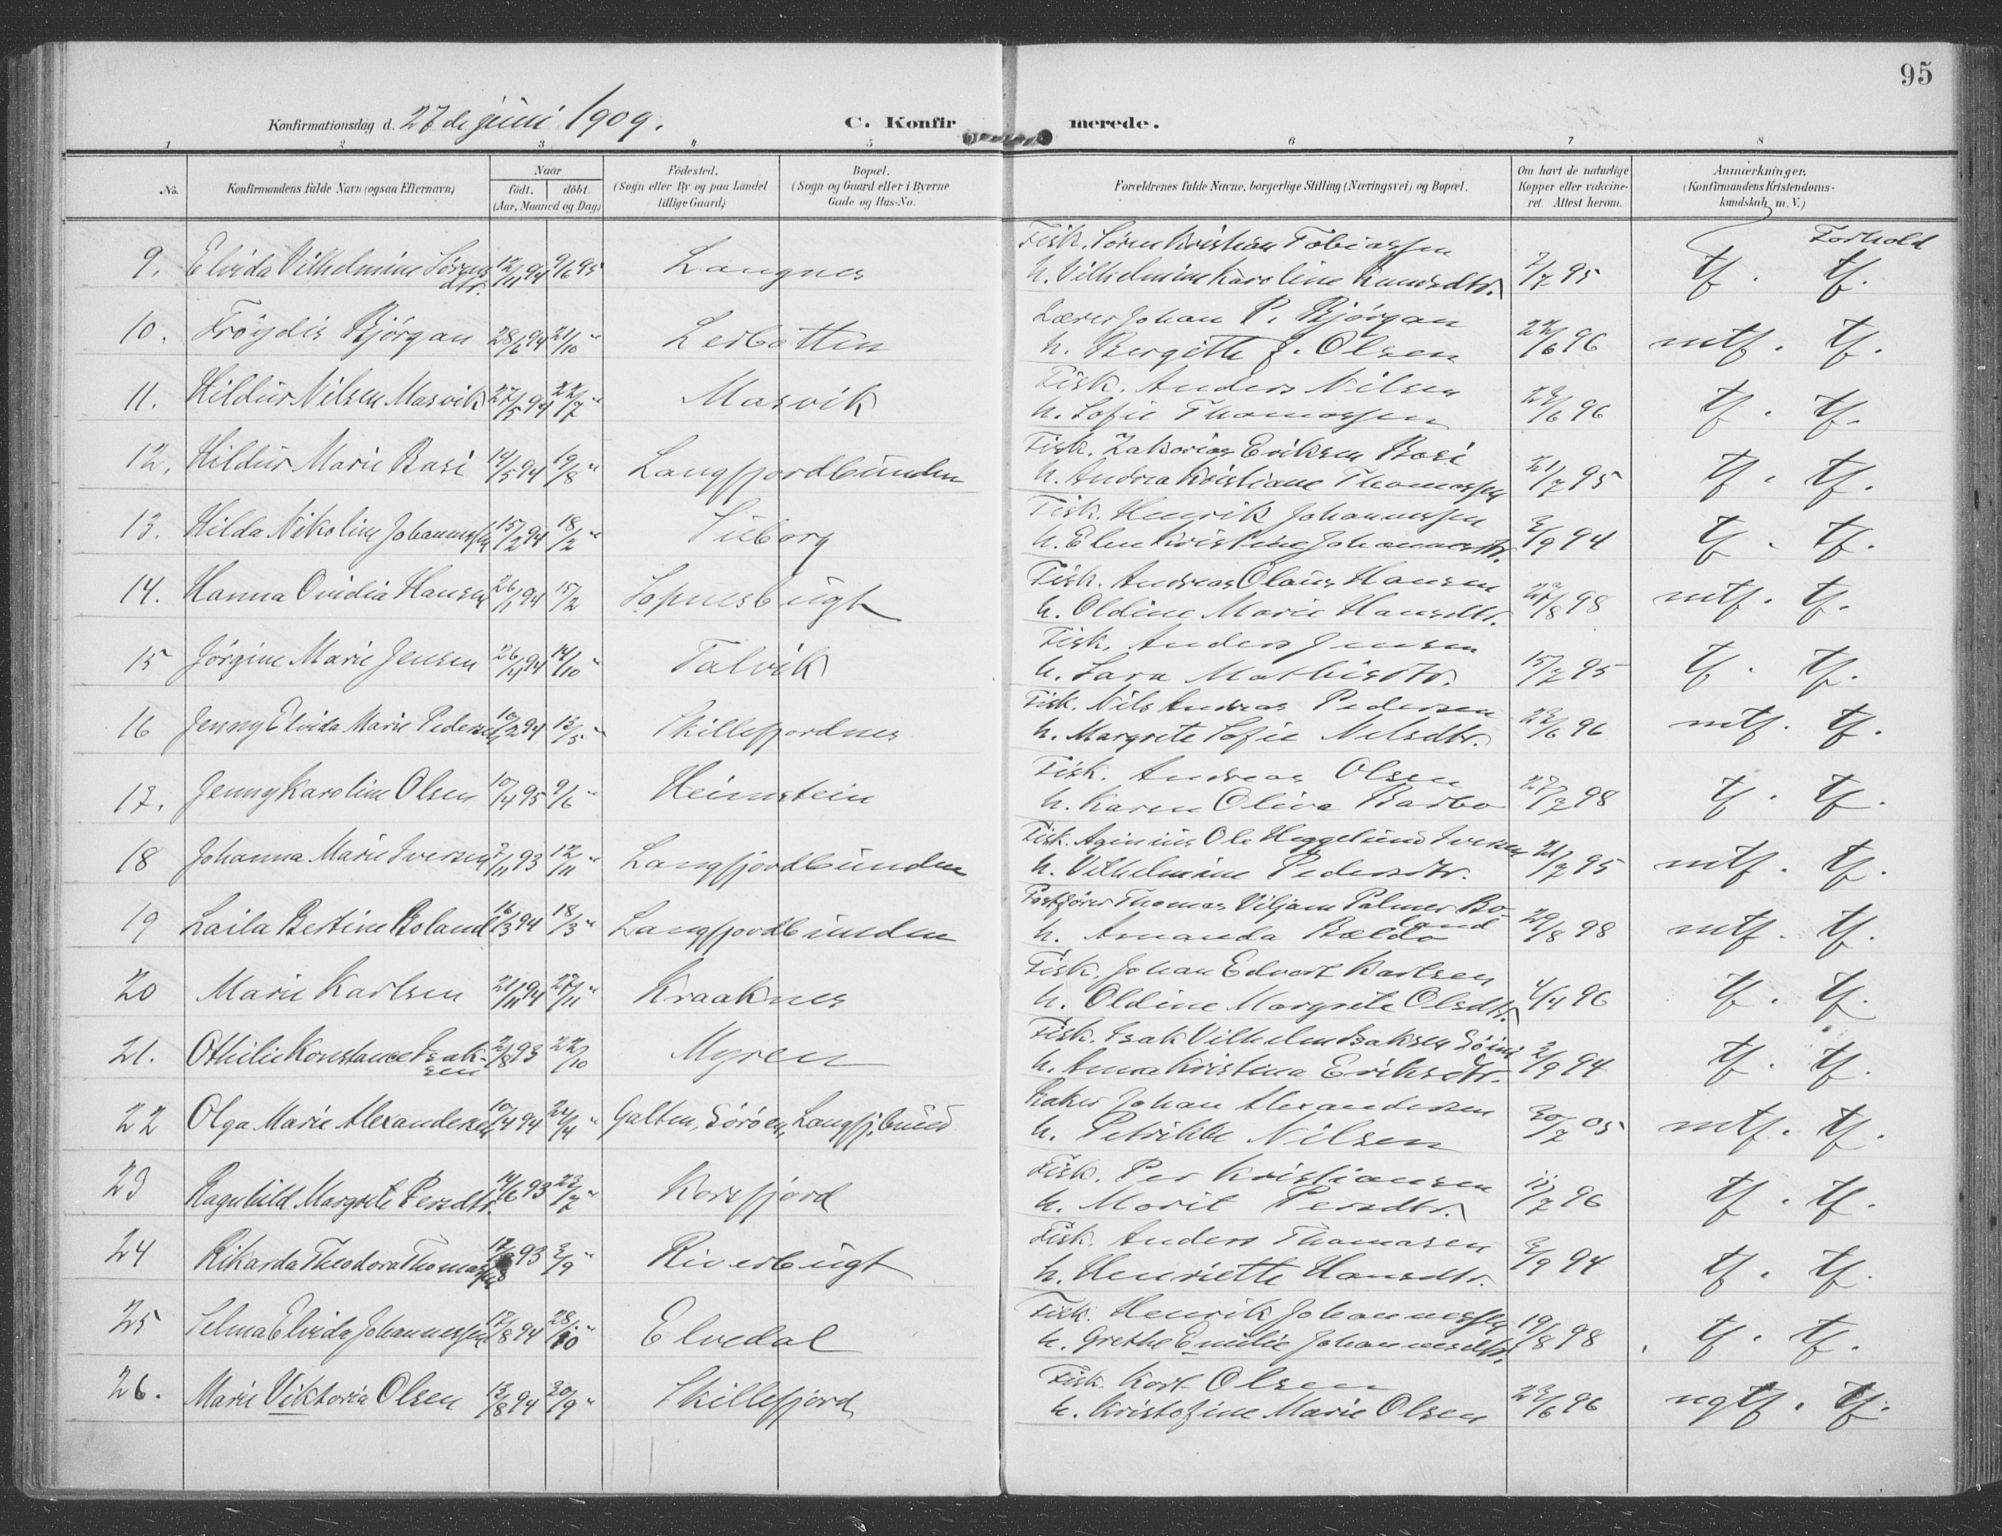 95
Konfirmationsdag d. 27de juni 1909. C. Konfirmerede.
1 2 3 4 5 6 7 8
No. Konfirmandens fulde Navn (ogsaa Efternavn) Naar født. døbt. (Aar, Maaned og Dag) Födested. (Sogn eller By og paa Landet tillige Gaard) Bopæl. (Sogn og Gaard eller i Byerne Gade og Hus-No. Forældrenes fulde Navne, borgerlige Stilling (Næringsvei) og Bopæl. Om havt de naturlige Kopper eller vakcineret Attest herom. Anmærkninger. (Konfirmandens Kristendomskundskab m. V.)
Forhold
9. Elvida Vilhelmine Sørens dtr. 12/11 94 9/6 95 Langnes Fisk. Søren Kristian Tobiassen
h. Vilhelmine Karoline Hansdtr. 2/7 95 tf. tf.
10. Frøydis Bjørgan 28/6 94 21/10 " Lerbotten Lærer Johan P. Bjørgan
h. Bergitte J. Olsen 22/6 96 mtf. tf.
11. Hildur Nilsen Masvik 27/5 94 22/7 " Masvik Fisk. Anders Nilsen
h. Sofie Thomassen 23/6 96 tf. tf.
12. Hildur Marie Basi 14/5 94 19/8 " Langfjordbunden Fisk. Zakarias Eriksen Basi
h. Andrea Kristiane Thomassen 21/7 95 tf. tf.
13. Hilda Nikoline Johannessen 15/2 94 18/2 " Fisk. Henrik Johannessen
h. Elen Kristine Johannesdtr. 3/9 94 tf. tf.
14. Hanna Ovidia Hansen 26/1 94 15/2 Sopnesbugt Fisk. Andreas Olaus Hansen
h. Oldine Marie Hansdtr. 27/8 98 mtf. tf.
15 Jørgine Marie Jensen 26/4 94 14/10 " Talvik Fisk. Anders Jensen
h. Sara Mathisdtr. 15/7 95 tf. tf.
16 Jenny Elvida Marie Pedersen 10/2 94 15/5 " Skillefjordnes Fisk. Nils Andreas Pedersen
h. Margrete Sofie Nilsdtr. 23/6 96 mtf. tf.
17. Jenny Karoline Olsen 10/4 95 9/6 " Heimstein Fisk. Andreas Olsen
h. Karen Oliva Barbo 27/7 98 tf. tf.
18 Johanna Marie Iversen 2/11 93 12/11 " Langfjordbunden Fisk. Ole Heggelund Iversen
h. Vilhelmine Pedersdtr. 21/7 95 mtf. tf.
19 Laila Bertine Boland 16/3 94 18/3 " Langfjordbunden Postfører Thomas Viljam Palmer Boland
h. Amanda Bældo 29/8 98 mtf. tf.
20 Marie Karlsen 21/11 94 27/11 " Kraaknes Fisk. Johan Edvart Karlsen
h. Oldine Margrete Olsdtr. 4/4 96 tf. tf.
21. Othilie Konstance Isaksen 2/8 93 22/10 Myren Fisk. Isak Vilhelm Isaksen
h. Anna Kristina Eriksdtr. 3/9 94 tf. tf.
22 Olga Marie Alexandersen 10/4 94 24/4 " Galten, Sørøen, Langfj.bund Baker Johan Alexandersen
h. Petrikke Nilsen 30/7 05 mtf. tf.
23 Ragnhild Margrete Persdtr. 14/6 93 23/7 " Korsfjord Fisk. Per Kristiansen
h. Marit Persdtr. 11/7 96 tf. tf.
24 Rikarda Theodora Thomassen 12/8 93 3/9 " Riverbugt Fisk. Anders Thomasen
h. Henriette Hansdtr. 3/9 94 tf. tf.
25 Selma Elvida Johannessen 12/8 94 28/10 " Elvedal Fisk. Henrik Johannessen
h. Grethe Emilie Johannesdtr. 19/8 98 tf. tf.
26. Marie Viktoria Olsen 13/8 94 30/9 " Skillefjord Fisk. Karl Olsen
h. Kristofine Marie Olsen 23/6 96 mgtf. tf.